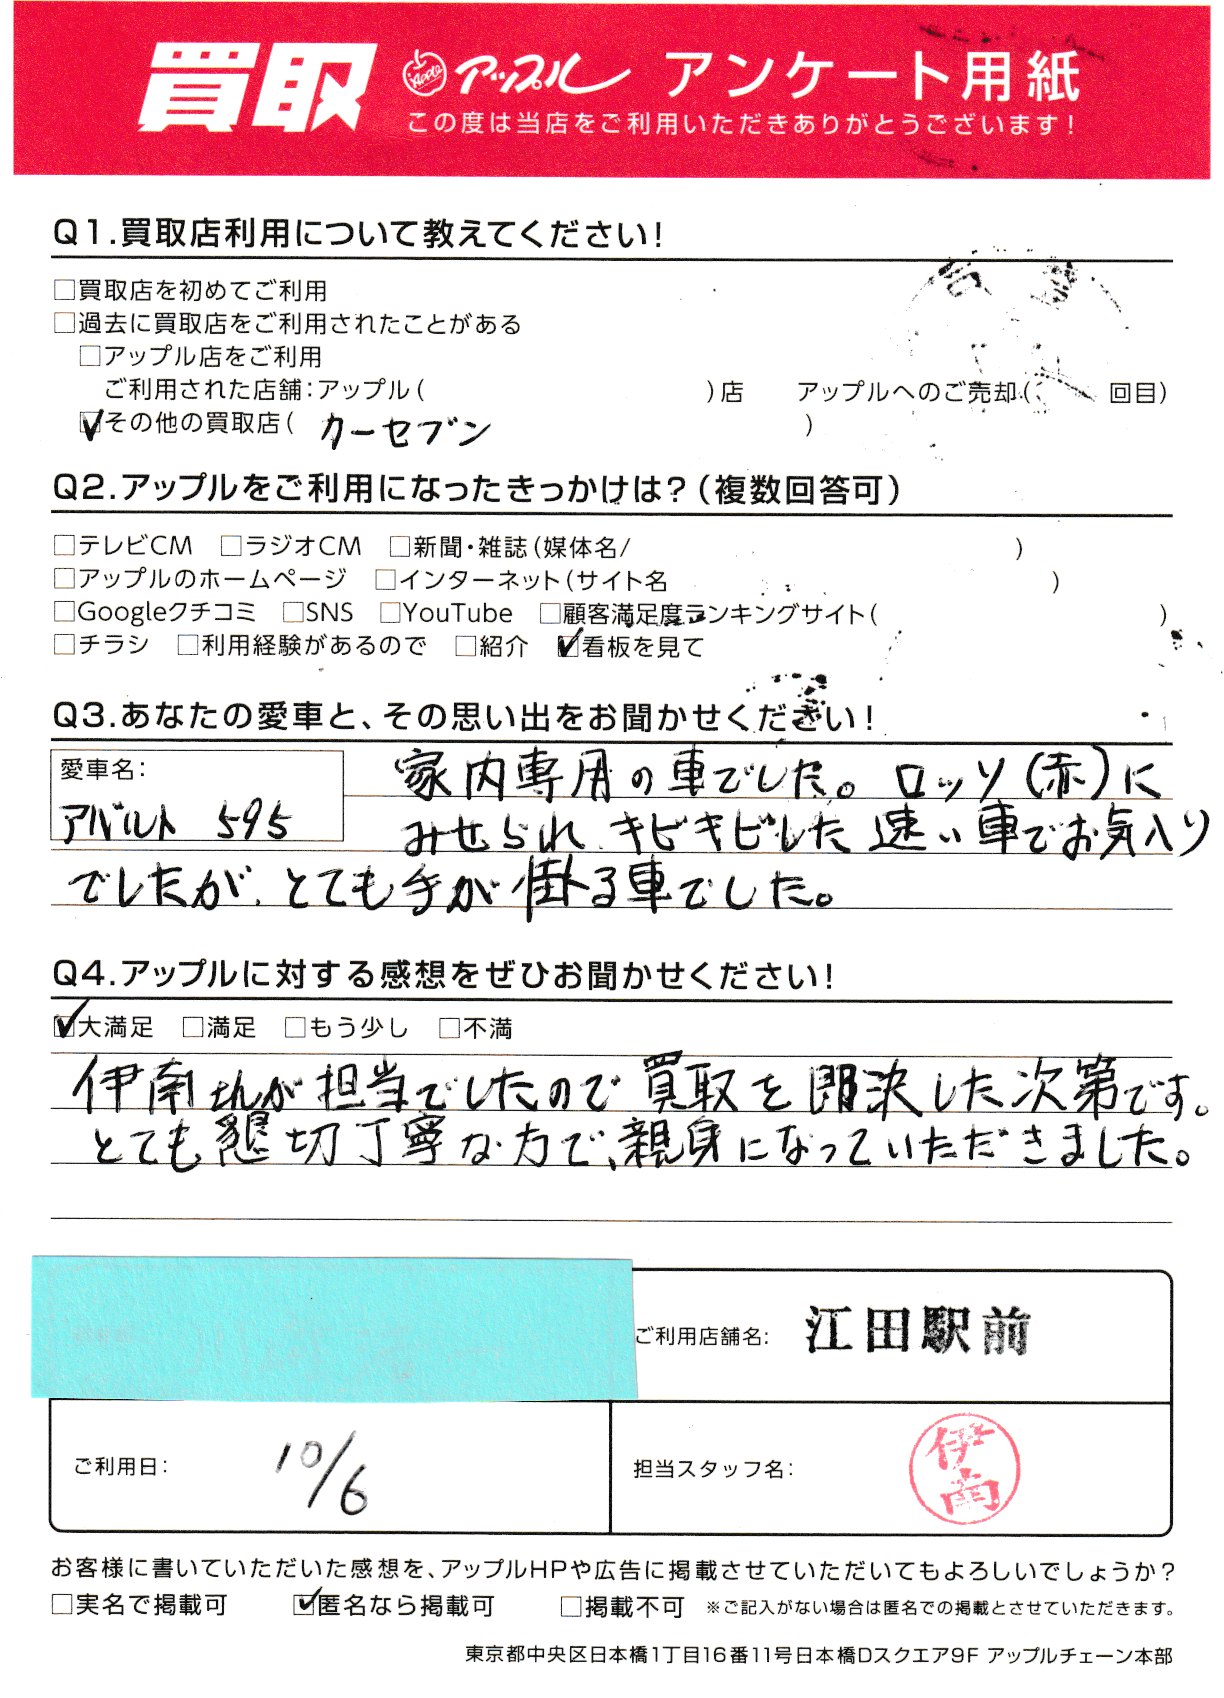 買取 アップル アンケート用紙
この度は当店をご利用いただきありがとうございます!
Q1.買取店利用について教えてください!
□買取店を初めてご利用
□過去に買取店をご利用されたことがある
□アップル店をご利用
ご利用された店舗:アップル( )店 アップルへのご売却( 回目)
☑その他の買取店( カーセブン )
Q2.アップルをご利用になったきっかけは?(複数回答可)
□テレビCM □ラジオCM □新聞・雑誌(媒体名/ )
□アップルのホームページ □インターネット(サイト名 )
□Googleクチコミ □SNS □YouTube □顧客満足度ランキングサイト( )
□チラシ □利用経験があるので □紹介 ☑看板を見て
Q3.あなたの愛車と、その思い出をお聞かせください!
愛車名:
アバルト 595
家内専用の車でした。ロッソ(赤)に
みせられ、キビキビした速い車でお気入り
でしたが、とても手が掛る車でした。
Q4.アップルに対する感想をぜひお聞かせください!
☑大満足 □満足 □もう少し □不満
伊南さんが担当でしたので買取を即決した次第です。
とても懇切丁寧な方で、親身になっていただきました。
ご利用店舗名: 江田駅前
ご利用日: 10/6
担当スタッフ名: 伊南
お客様に書いていただいた感想を、アップルHPや広告に掲載させていただいてもよろしいでしょうか?
□実名で掲載可 ☑匿名なら掲載可 □掲載不可 ※ご記入がない場合は匿名での掲載とさせていただきます。
東京都中央区日本橋1丁目16番11号日本橋Dスクエア9F アップルチェーン本部